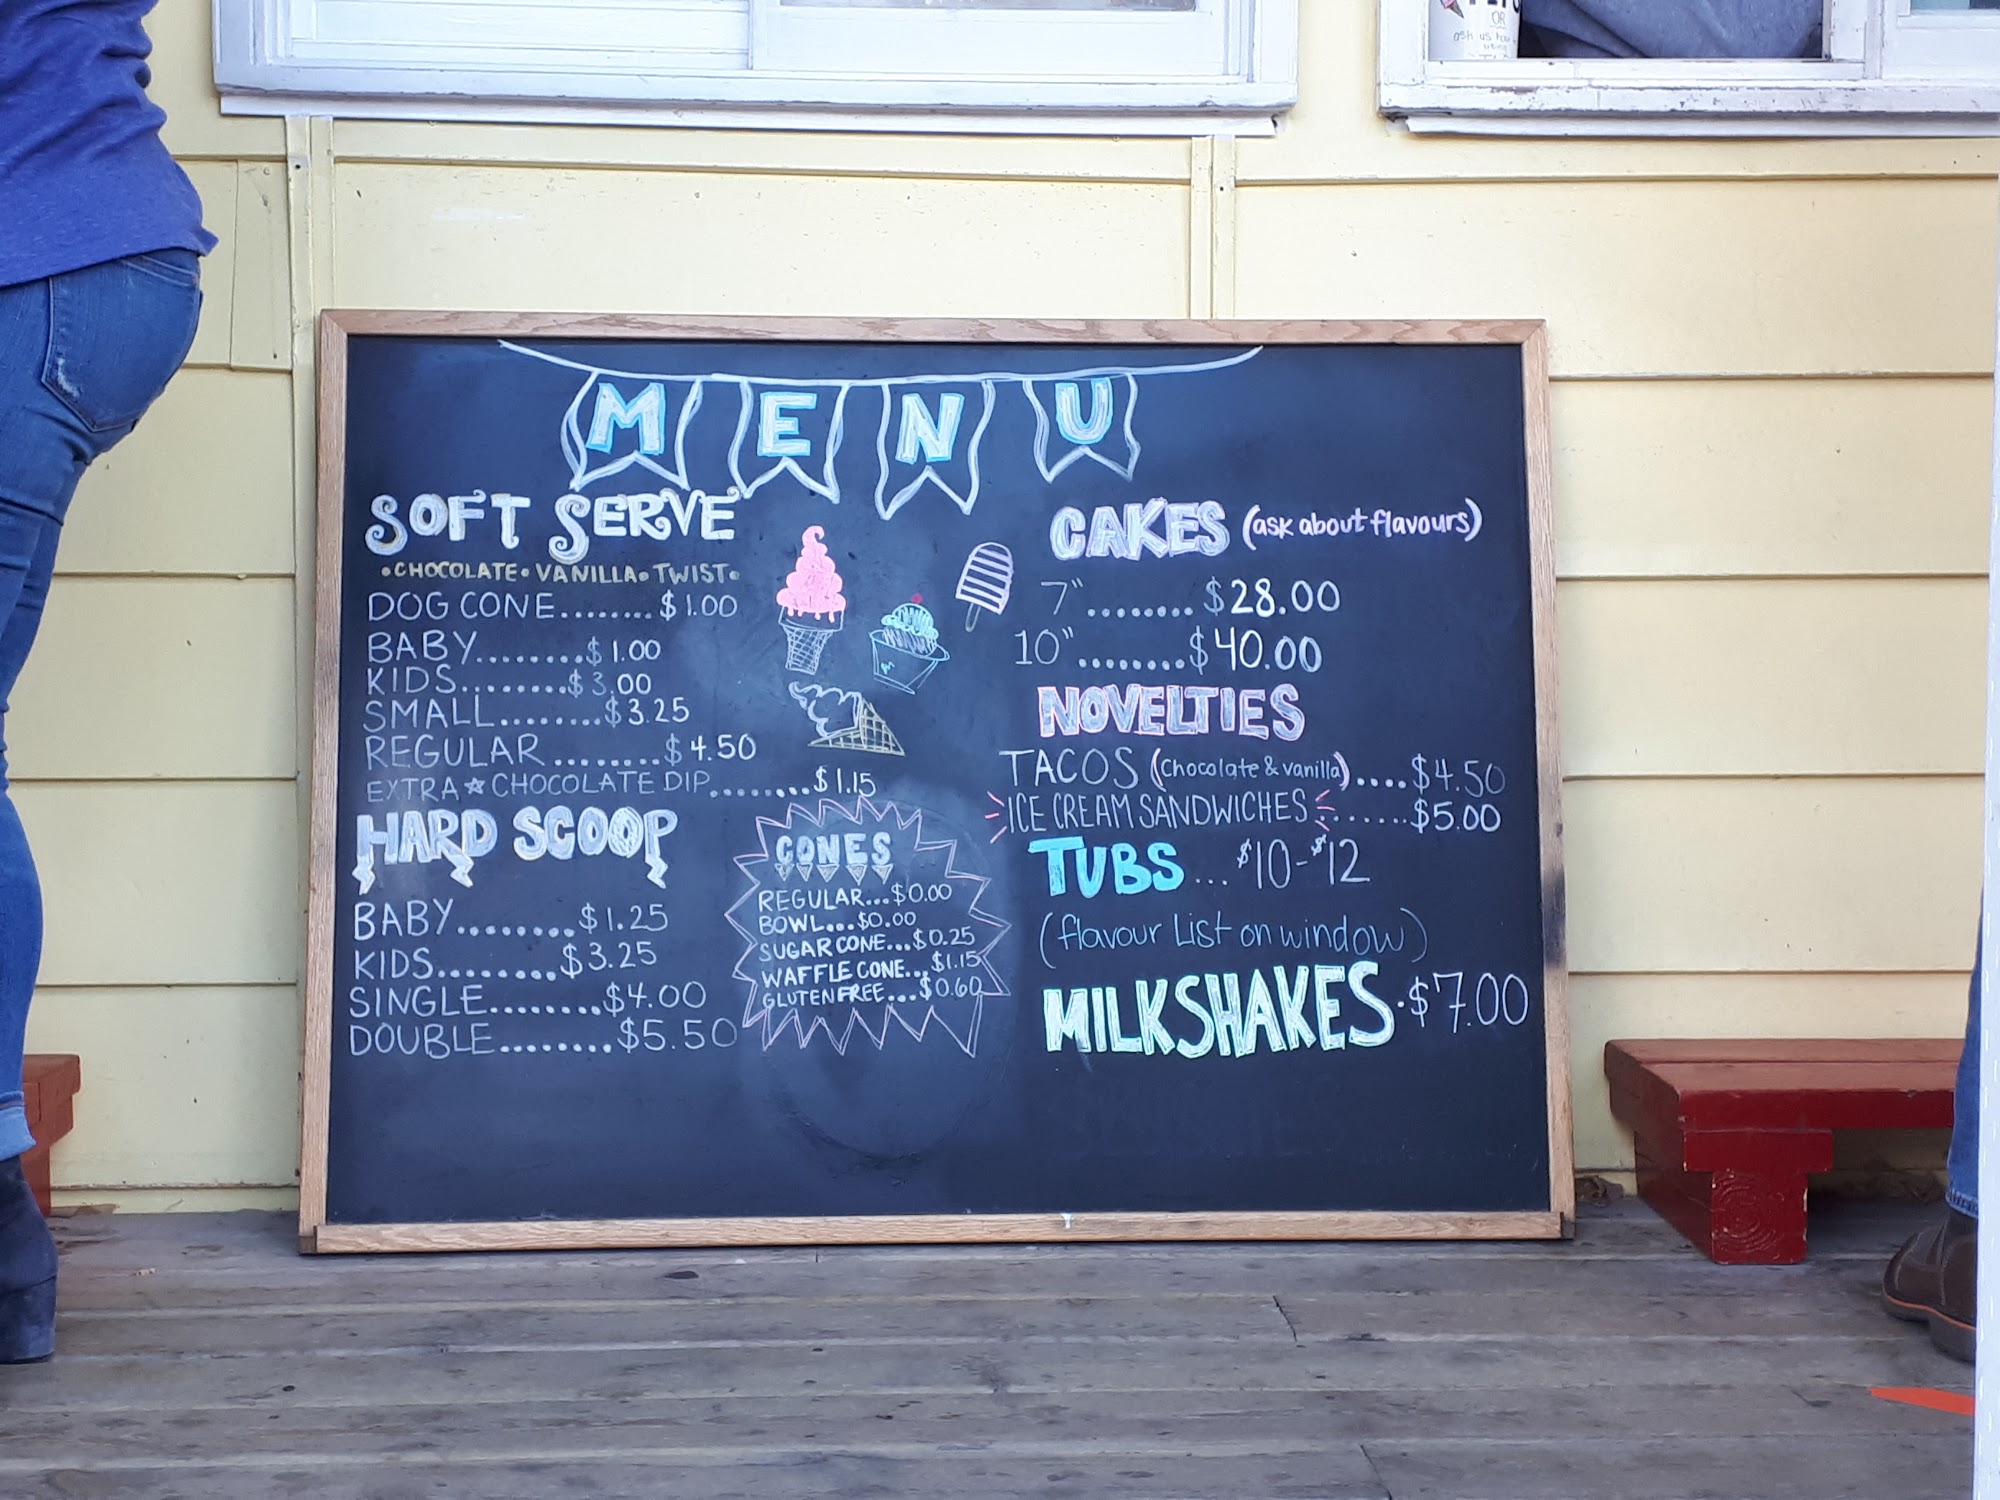 OR
ask us
MENU
SOFT SERVE
•CHOCOLATE•VANILLA•TWIST•
DOG CONE.........$1.00
BABY.........$1.00
KIDS.........$3.00
SMALL........$3.25
REGULAR.........$4.50
EXTRA☆CHOCOLATE DIP.........$1.15
HARD SCOOP
BABY.........$1.25
KIDS.........$3.25
SINGLE.........$4.00
DOUBLE........$5.50
CONES
REGULAR...$0.00
BOWL...$0.00
SUGAR CONE...$0.25
WAFFLE CONE...$1.15
GLUTEN FREE...$0.60
CAKES (ask about flavours)
7"........$28.00
10"........$40.00
NOVELTIES
TACOS (Chocolate & vanilla)....$4.50
ICE CREAM SANDWICHES.......$5.00
TUBS...$10-$12
(flavour List on window)
MILKSHAKES.$7.00